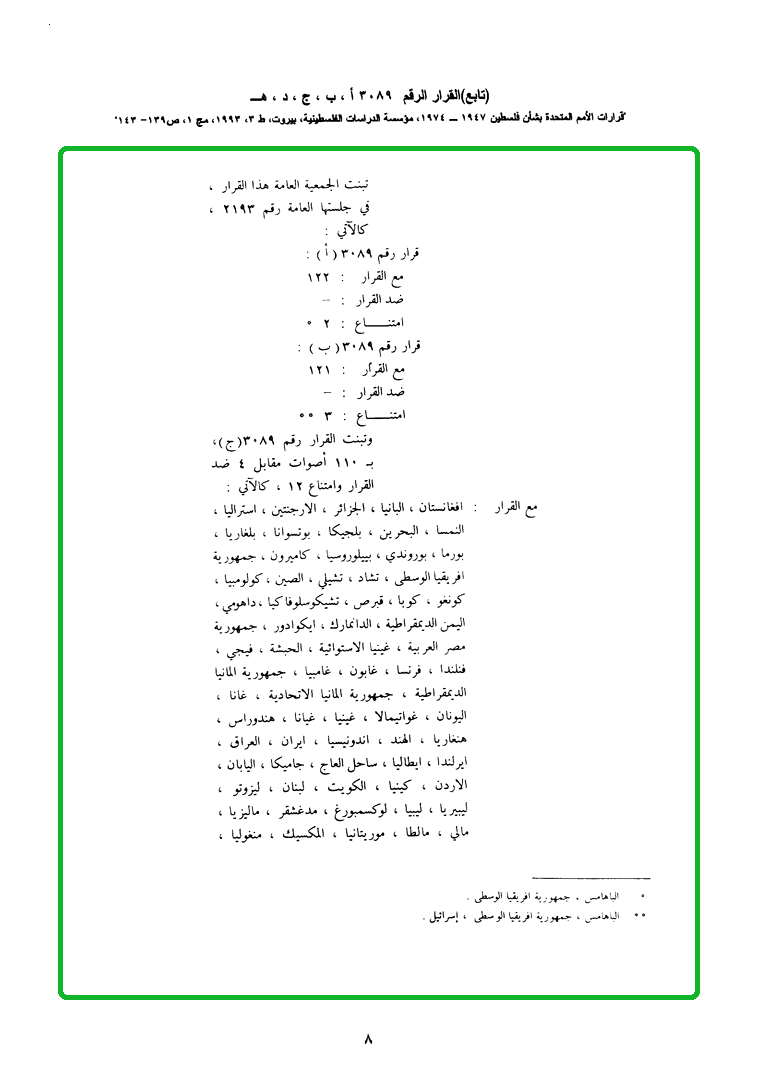 (تابع)القرار الرقم ٣٠٨٩ أ ، ب ، ج ، د ، هــ
"قرارات الأمم المتحدة بشأن فلسطين ١٩٤٧ ــ ١٩٧٤، مؤسسة الدراسات الفلسطينية، بيروت، ط ٣، ١٩٩٣، مج ١، ص١٣٩- ١٤٣"
تبنت الجمعية العامة هذا القرار ،
في جلستها العامة رقم ٢١٩٣ ،
كالآتي :
قرار رقم ٣٠٨٩ ( أ ) :
مع القرار : ١٢٢
ضد القرار : –
امتنـــــاع : ٢ *
قرار رقم ٣٠٨٩ ( ب ) :
مع القرار : ١٢١
ضد القرار : –
امتنـــــاع : ٣ **
وتبنت القرار رقم ٣٠٨٩(ج)،
بـ ١١٠ أصوات مقابل ٤ ضد
القرار وامتناع ١٢ ، كالآتي :
مع القرار : افغانستان ، البانيا ، الجزائر ، الارجنتين ، استراليا ،
النمسا ، البحرين ، بلجيكا ، بوتسوانا ، بلغاريا ،
بورما ، بوروندي ، بييلوروسيا ، كاميرون ، جمهورية
افريقيا الوسطى ، تشاد ، تشيلي ، الصين ، كولومبيا ،
كونغو ، كوبا ، قبرص ، تشيكوسلوفاكيا ، داهومي ،
اليمن الديمقراطية ، الدانمارك ، ايكوادور ، جمهورية
مصر العربية ، غينيا الاستوائية ، الحبشة ، فيجي ،
فنلندا ، فرنسا ، غابون ، غامبيا ، جمهورية المانيا
الديمقراطية ، جمهورية المانيا الاتحادية ، غانا ،
اليونان ، غواتيمالا ، غينيا ، غيانا ، هندوراس ،
هنغاريا ، الهند ، اندونيسيا ، ايران ، العراق ،
ايرلندا ، ايطاليا ، ساحل العاج ، جاميكا ، اليابان ،
الاردن ، كينيا ، الكويت ، لبنان ، ليزوتو ،
ليبيريا ، ليبيا ، لوكسمبورغ ، مدغشقر ، ماليزيا ،
مالي ، مالطا ، موريتانيا ، المكسيك ، منغوليا ،
* الباهامس ، جمهورية افريقيا الوسطى .
** الباهامس ، جمهورية افريقيا الوسطى ، إسرائيل .
٨